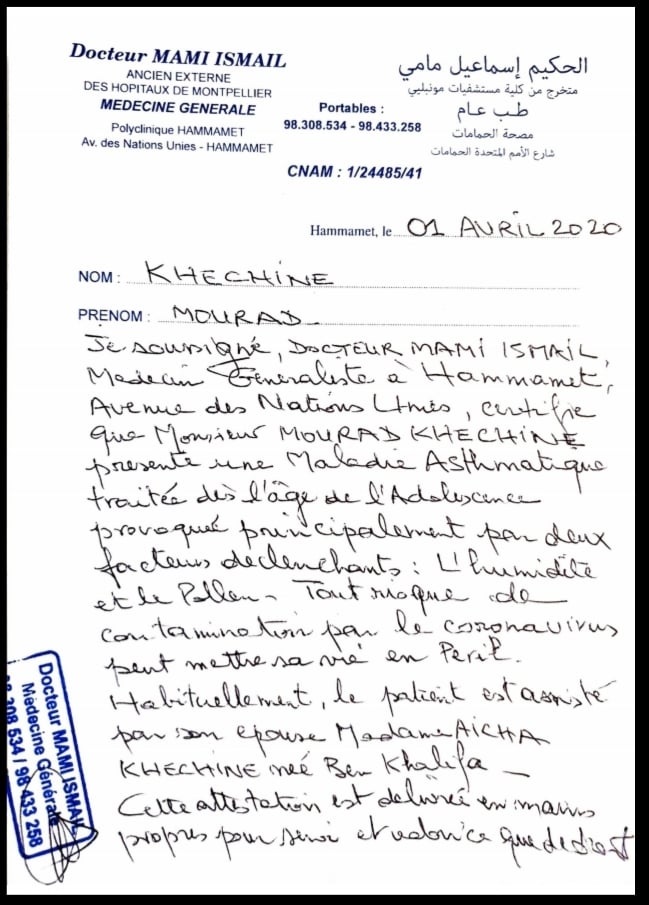 Docteur MAMI ISMAIL
ANCIEN EXTERNE
DES HOPITAUX DE MONTPELLIER
MEDECINE GENERALE
Polyclinique HAMMAMET
Av. des Nations Unies - HAMMAMET
Portables :
98.308.534 - 98.433.258
CNAM : 1/24485/41
الحكيم إسماعيل مامي
متخرج من كلية مستشفيات مونبليي
طب عام
مصحة الحمامات
شارع الأمم المتحدة الحمامات
Hammamet, le 01 AVRIL 2020
NOM : KHECHINE
PRENOM : MOURAD
Je soussigné, DOCTEUR MAMI ISMAIL,
Medecin Généraliste à Hammamet,
Avenue des Nations Unies, certifie
que Monsieur MOURAD KHECHINE
presente une Maladie Asthmatique
traitée dès l'âge de l'Adolescence
provoquée principalement par deux
facteurs declenchants : L'humidité
et le Pollen - Tout risque de
contamination par le coronavirus
peut mettre sa vie en Peril.
Habituellement, le patient est assisté
par son epouse Madame AICHA
KHECHINE née Ben Khalifa -
Cette attestation est délivrée en mains
propres pour servir et valoir ce que de droit
Docteur MAMI ISMAIL
Médecine Générale
98 308 534 / 98 433 258